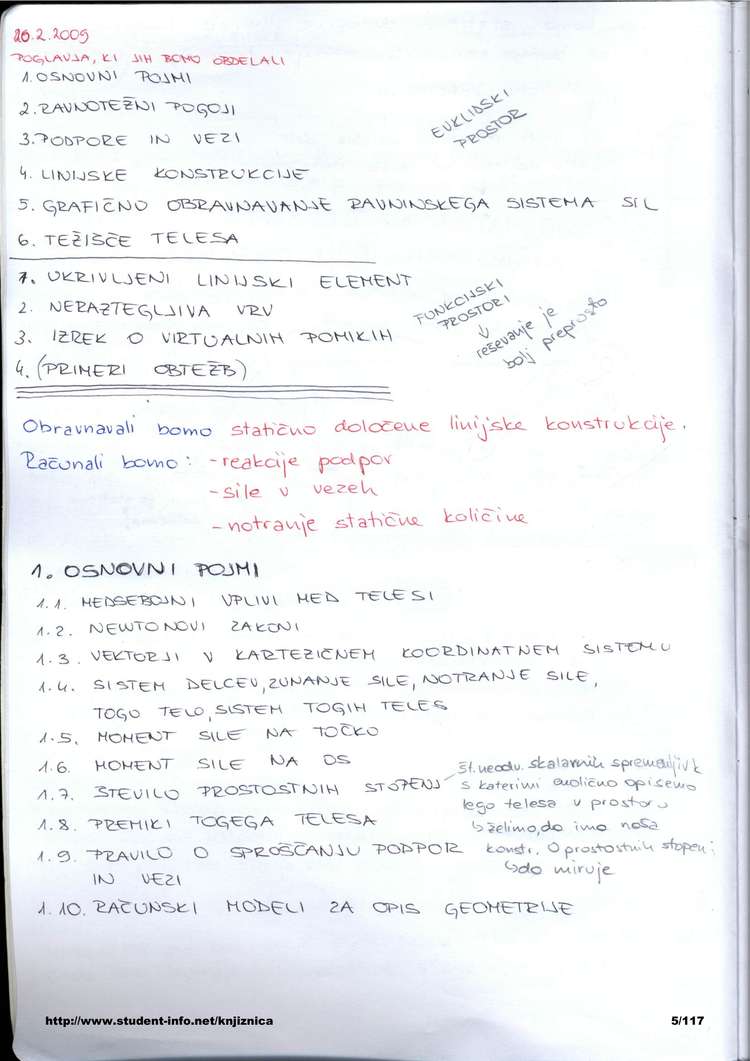 26.2.2009
POGLAVJA, KI JIH BOMO OBDELALI
1. OSNOVNI POJMI
2. RAVNOTEŽNI POGOJI
3. PODPORE IN VEZI
EUKLIDSKI
PROSTOR
4. LINIJSKE KONSTRUKCIJE
5. GRAFIČNO OBRAVNAVANJE RAVNINSKEGA SISTEMA SIL
6. TEŽIŠČE TELESA
1. UKRIVLJENI LINIJSKI ELEMENT
2. NERAZTEGLJIVA VRV
3. IZREK O VIRTUALNIH POMIKIH
4. (PRIMERI OBTEŽB)
FUNKCIJSKI
PROSTORI
↓
reševanje je
bolj preprosto
Obravnavali bomo statično določene linijske konstrukcije.
Računali bomo: - reakcije podpor
- sile v vezeh
- notranje statične količine
1. OSNOVNI POJMI
1.1. MEDSEBOJNI VPLIVI MED TELESI
1.2. NEWTONOVI ZAKONI
1.3. VEKTORJI V KARTEZIČNEM KOORDINATNEM SISTEMU
1.4. SISTEM DELCEV, ZUNANJE SILE, NOTRANJE SILE,
TOGO TELO, SISTEM TOGIH TELES
1.5. MOMENT SILE NA TOČKO
1.6. MOMENT SILE NA OS
1.7. ŠTEVILO PROSTOSTNIH STOPENJ
št. neodv. skalarnih spremenljivk
s katerimi enolično opišemo
lego telesa v prostoru
↳ želimo, da ima naša
konstr. 0 prostostnih stopenj
↳ da miruje
1.8. PREMIKI TOGEGA TELESA
1.9. PRAVILO O SPROŠČANJU PODPOR
IN VEZI
1.10. RAČUNSKI MODELI ZA OPIS GEOMETRIJE
http://www.student-info.net/knjiznica
5/117